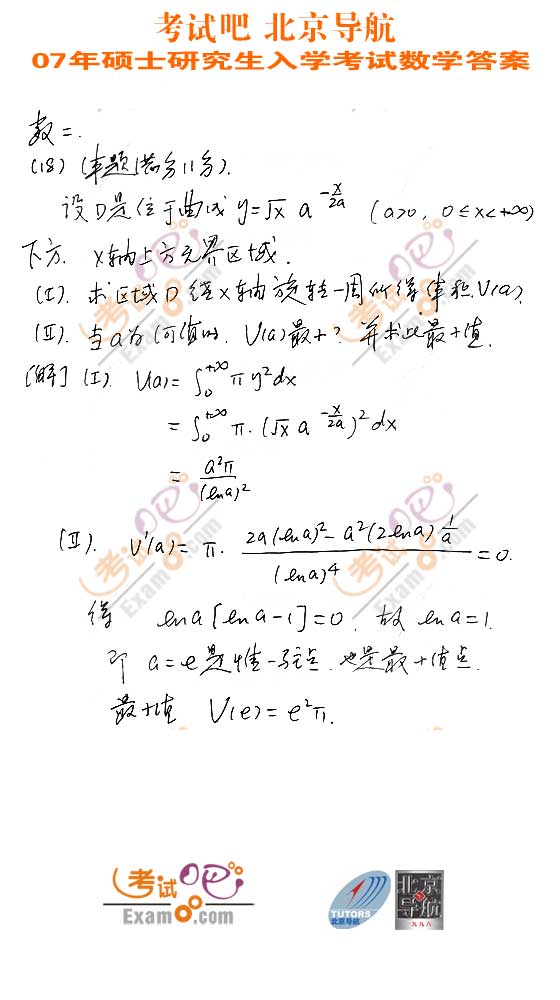 考试吧 北京导航
07年硕士研究生入学考试数学答案
数二.
(18) (本题满分11分).
设D是位于曲线 y=√x a^{-x/2a} (a>0, 0≤x<+∞)
下方. x轴上方无界区域.
(I). 求区域D绕x轴旋转一周所得体积V(a).
(II). 当a为何值时. V(a)最小? 并求此最小值.
[解] (I). V(a)= ∫₀^{+∞} π y² dx
= ∫₀^{+∞} π·(√x a^{-x/2a})² dx
= a²π/(lna)²
(II). V'(a)= π· (2a(lna)²-a²(2lna)1/a)/(lna)⁴ =0.
得 lna[lna-1]=0. 故 lna=1.
即 a=e是唯一驻点. 也是最小值点.
最小值 V(e)=e²π.
考试吧 Exam8.com
TUTORS
北京导航
北京导航
九九八